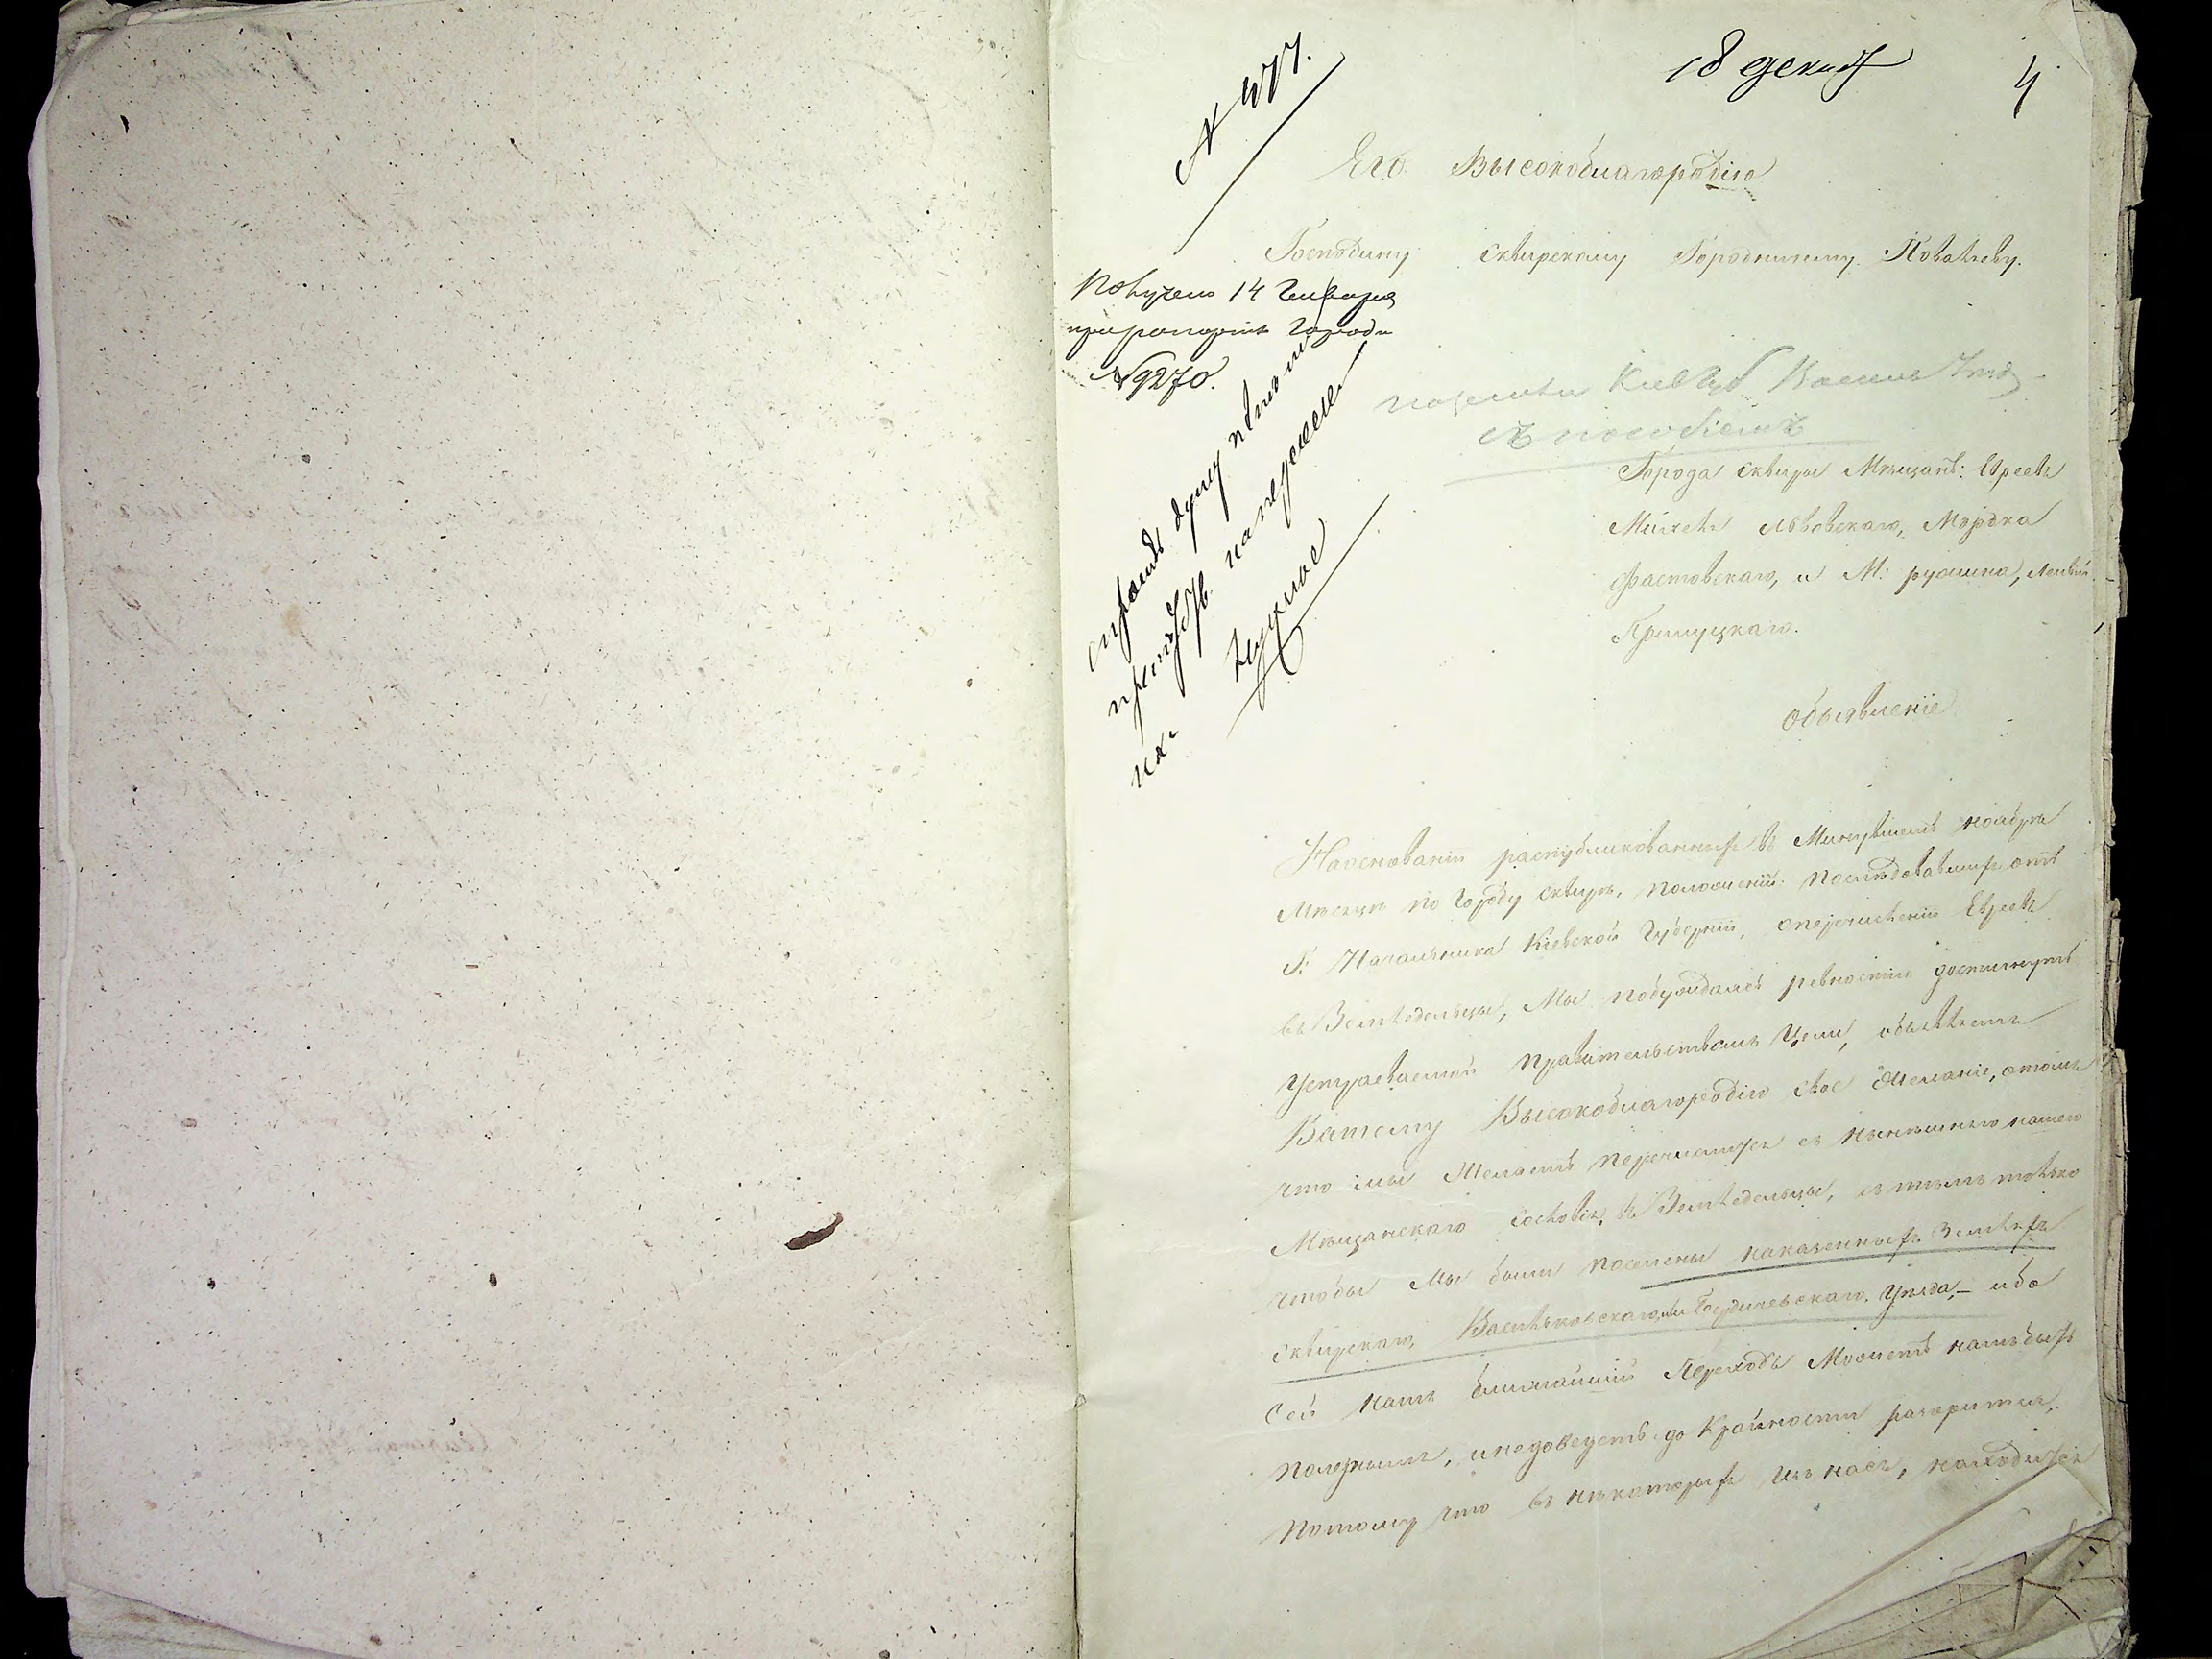 18 декаб
4
№ 477.
Его Высокоблагородію
Господину Сквирскому Городничему Ковалеву.
Получено 14 Генваря
при рапорте Городн
№ 9270.
Нужное
съ пособіемъ
Города Сквиры Мѣщанъ: Евреевъ
Мошка Львовскаго, Мордка
Фастовскаго, и М:
Прилуцкаго.
Объявленіе
На основаніи распубликованныхъ въ Минувшемъ ноябрѣ
Мѣсяцѣ по Городу Сквирѣ, положеній: последовавшихъ отъ
Г. Начальника Кіевской Губерніи, о перечисленіи Евреевъ
въ Земледельцы, Мы побуждаясь ревностію достигнуть
Устраеваемой Правительствомъ Цели, объявляемъ
Вашему Высокоблагородію свое Желаніе, о томъ
что мы Желаемъ перечислится съ нынешняго нашего
Мѣщанскаго сословія, въ Земледельцы, съ тѣмъ только
чтобы Мы были поселены на казенныхъ Земляхъ
Сквирскаго, Васильковскаго, или Бердичевскаго Уѣзда,– ибо
Сей намъ ближайшій Переходъ Можетъ намъ быть
полезнымъ, и недоведетъ до Крайности разорится,
Потому что въ нѣкоторыхъ изъ насъ, находится